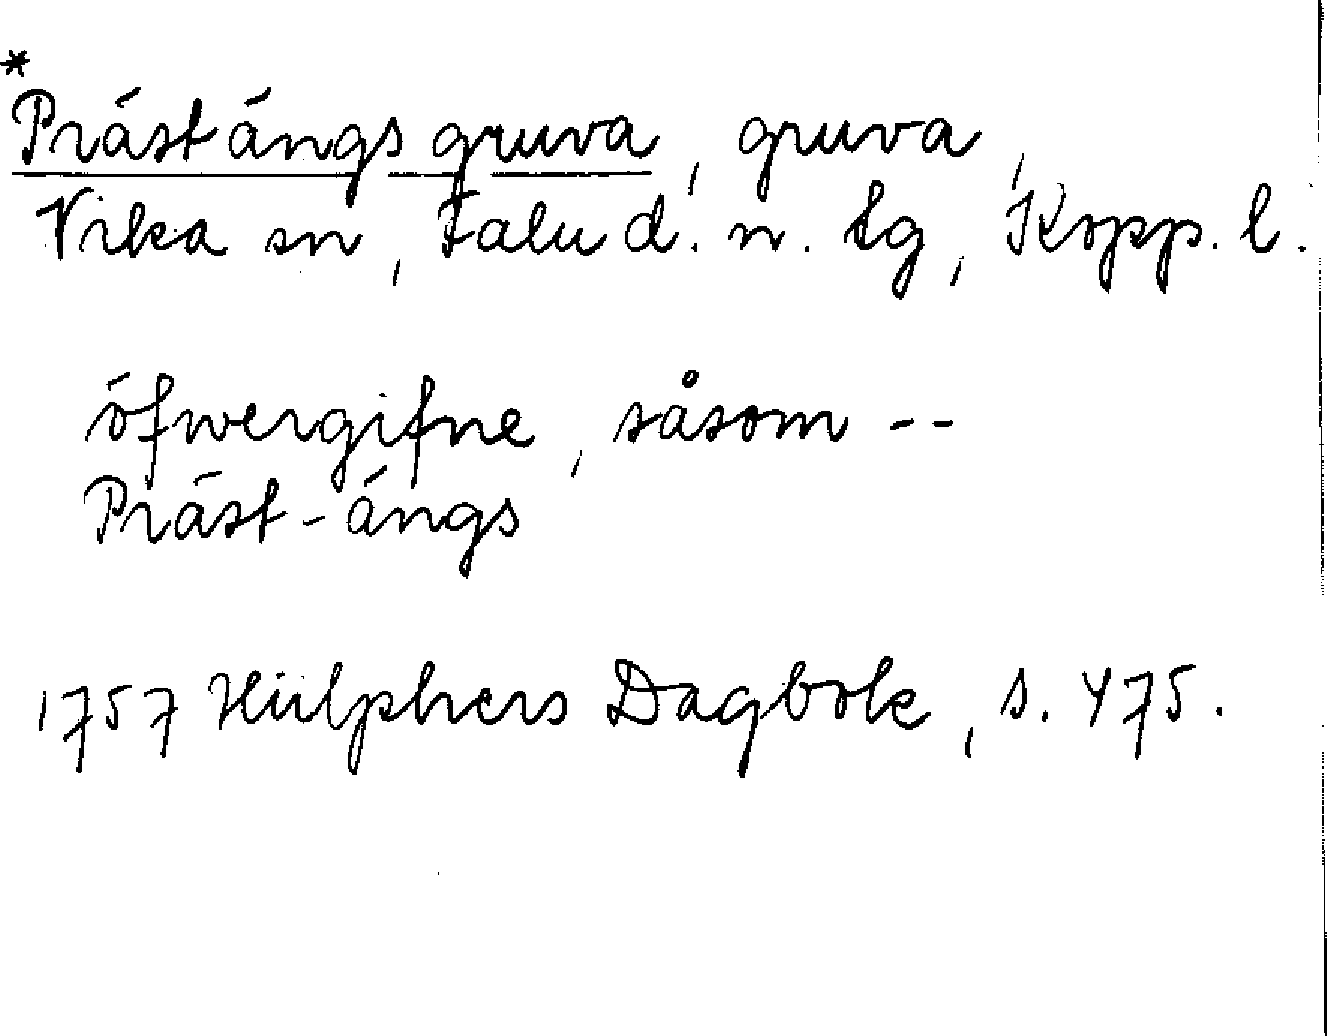 *
Prästängsgruva, gruva,
Vika sn, Falu d. n. tg, Kopp. l.
öfwergifne, såsom --
Präst-ängs
1757 Hülphers Dagbok, s. 475.